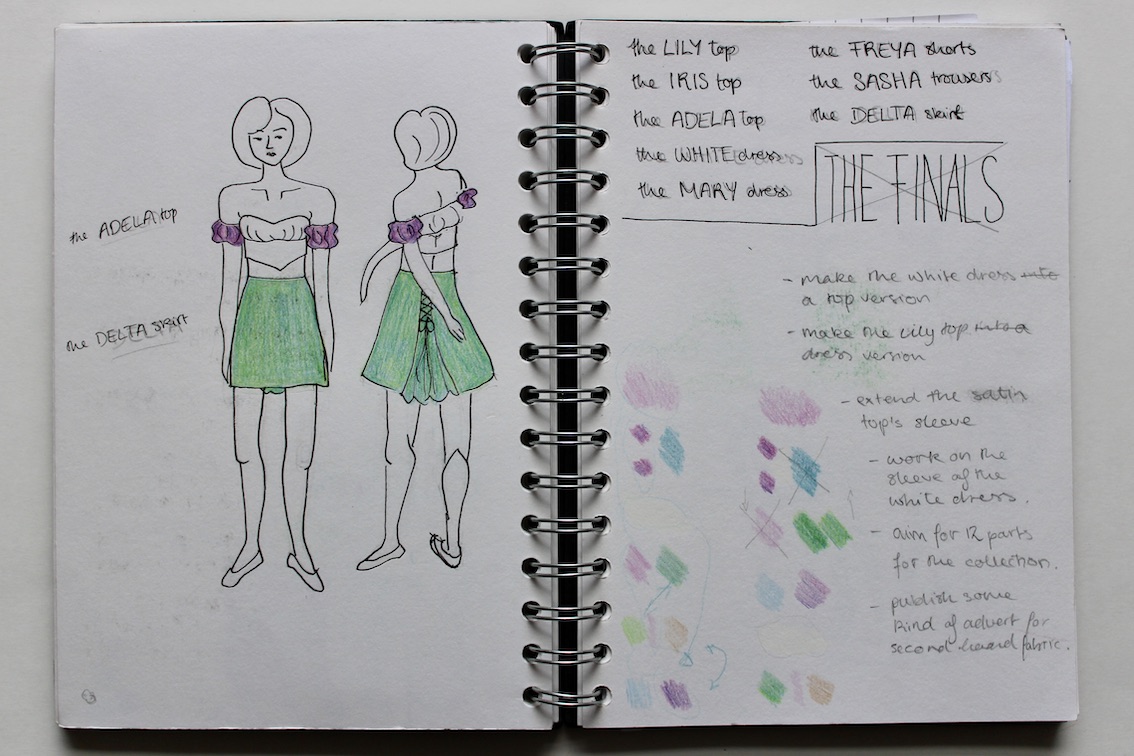 the ADELA top
the DELTA skirt
the LILY top
the IRIS top
the ADELA top
the WHITE dress
the MARY dress
the FREYA shorts
the SASHA trousers
the DELTA skirt
THE FINALS
- make the white dress into
a top version
- make the Lily top into a
dress version
- extend the satin
top's sleeve
- work on the
sleeve of the
white dress.
- aim for 12 parts
for the collection.
- publish some
kind of advert for
second hand fabric.